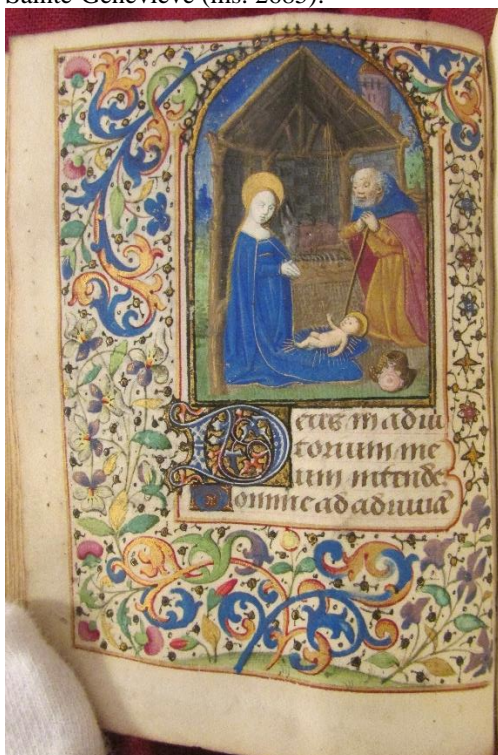 Sainte-Geneviève (ms. 2685).
Deus in adiu
torium me
um intende.
Domine ad adiuua